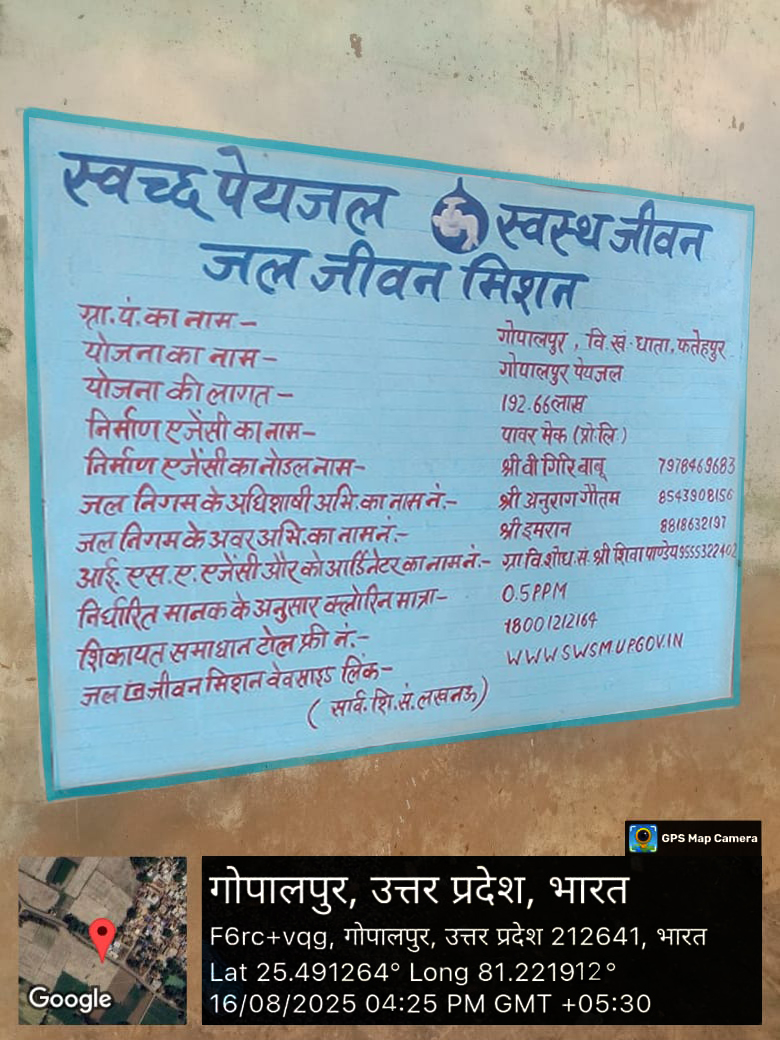 स्वच्छ पेयजल स्वस्थ जीवन
जल जीवन मिशन
ग्रा.पं.का नाम – गोपालपुर, वि.खं. धाता, फतेहपुर
योजना का नाम – गोपालपुर पेयजल
योजना की लागत – 192.66लाख
निर्माण एजेंसी का नाम – पावर मेक (प्रो.लि.)
निर्माण एजेंसी का नोडल नाम – श्री वी गिरि बाबू 7978469683
जल निगम के अधिशाषी अभि. का नाम नं.– श्री अनुराग गौतम 8543908156
जल निगम के अवर अभि. का नाम नं.– श्री इमरान 8818632197
आई. एस. ए. एजेंसी और को आर्डिनेटर का नाम नं.– ग्रा वि. शोध. सं. श्री शिवा पाण्डेय 9555322402
निर्धारित मानक के अनुसार क्लोरिन मात्रा – 0.5PPM
शिकायत समाधान टोल फ्री नं.– 18001212164
जल जीवन मिशन वेवसाइड लिंक – WWW.SWSM.UP.GOV.IN
( सार्व. शि. सं. लखनऊ )
GPS Map Camera
गोपालपुर, उत्तर प्रदेश, भारत
F6rc+vqg, गोपालपुर, उत्तर प्रदेश 212641, भारत
Lat 25.491264° Long 81.221912°
16/08/2025 04:25 PM GMT +05:30
Google